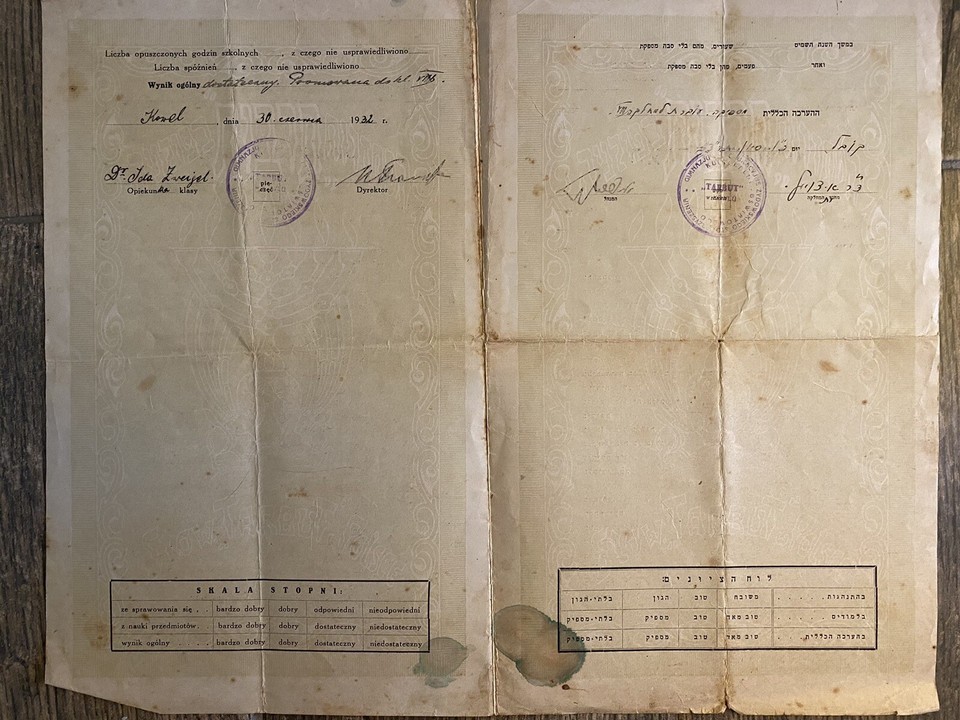 Liczba opuszczonych godzin szkolnych ......, z czego nie usprawiedliwiono
Liczba spóźnień ......, z czego nie usprawiedliwiono
Wynik ogólny dostateczny. Promowana do kl. VIII.
Kowel, dnia 30 czerwca 1932 r.
Dr Ida Zweigel.
Opiekunka klasy
pieczęć
Dyrektor
SKALA STOPNI:
ze sprawowania się . . bardzo dobry dobry odpowiedni nieodpowiedni
z nauki przedmiotów. . bardzo dobry dobry dostateczny niedostateczny
wynik ogólny . . . bardzo dobry dobry dostateczny niedostateczny
במשך השנה השמיט שעורים, מהם בלי סבה מספקת
ואחר פעמים, מהן בלי סבה מספקת
ההערכה הכללית מספיקה. עוברת למחלקה VIII.
קובל יום כ"ו סיון תרצ"ב
"TARBUT"
ד"ר א.
המחלקה
המנהל
לוח הציונים:
בהתנהגות . . . . . משובח טוב הגון בלתי-הגון
בלמודים . . . . . טוב מאד טוב מספיק בלתי-מספיק
בהערכה הכללית. . . טוב מאד טוב מספיק בלתי-מספיק